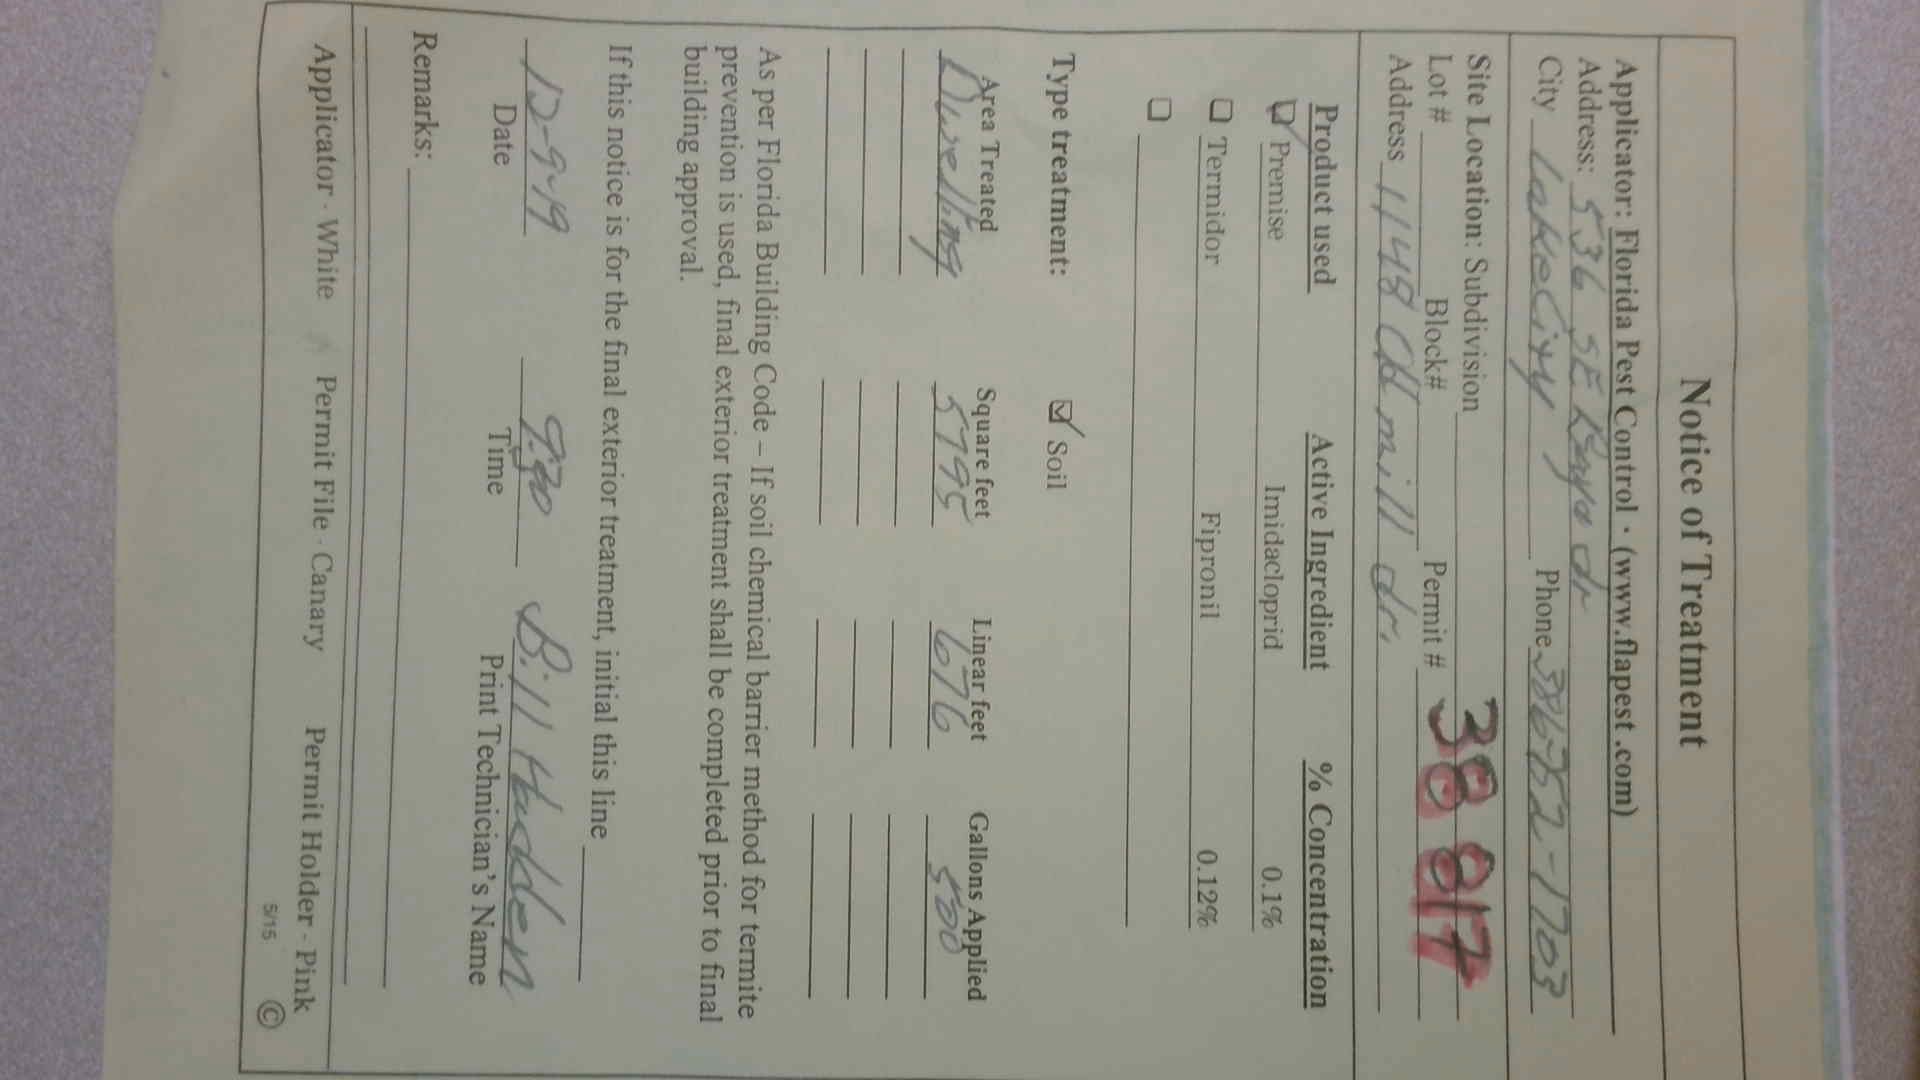 Notice of Treatment
Applicator: Florida Pest Control · (www.flapest.com)
Address: 536 SE Baya dr
City Lake City Phone 386-752-1703
Site Location: Subdivision
Lot # Block# Permit # 38817
Address 1148 Old mill dr.
Product used Active Ingredient % Concentration
☑ Premise Imidacloprid 0.1%
☐ Termidor Fipronil 0.12%
☐
Type treatment: ☑ Soil
Area Treated Square feet Linear feet Gallons Applied
Dwelling 5795 676 500
As per Florida Building Code – If soil chemical barrier method for termite
prevention is used, final exterior treatment shall be completed prior to final
building approval.
If this notice is for the final exterior treatment, initial this line
12-9-19 Bill Hadden
Date Time Print Technician's Name
Remarks:
Applicator - White Permit File - Canary Permit Holder - Pink
5/15 ©